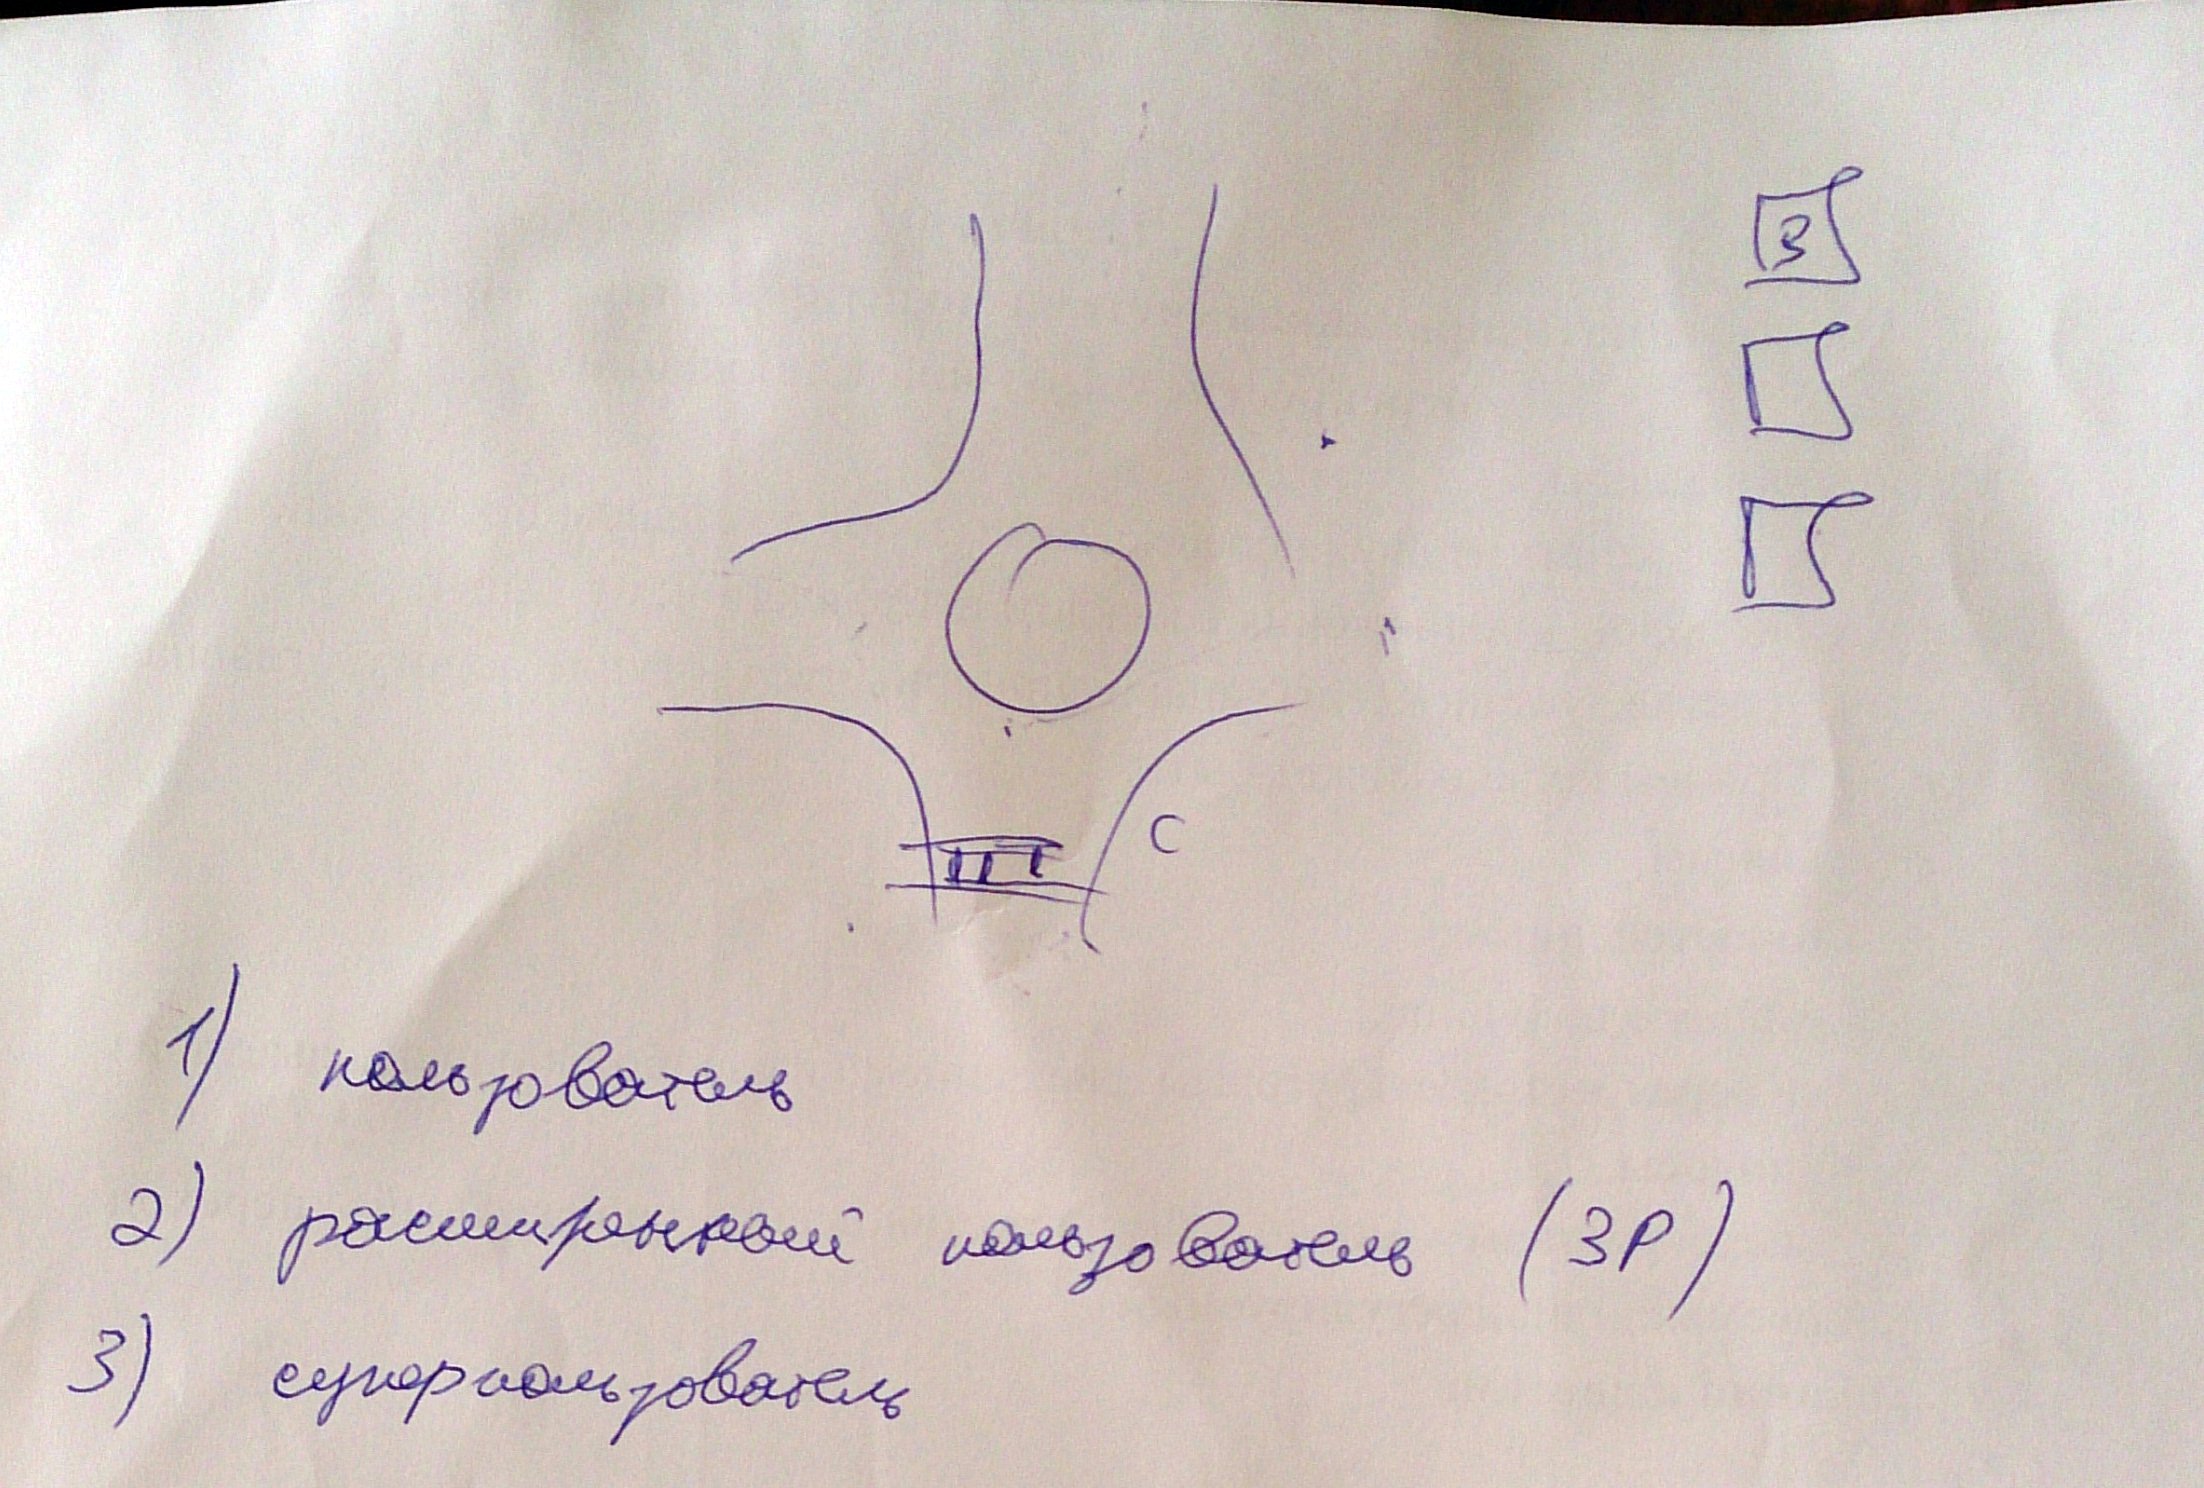 З
С
1) пользователь
2) расширенный пользователь (ЗР)
3) суперпользователь